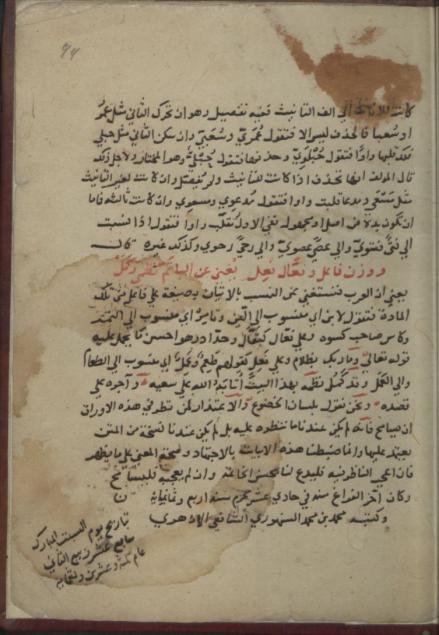 كانت للتأنيث أي الف التأنيث ففيه تفصيل وهو ان تحرك الثاني مثل
او شعبا فالحذف ليس الا فتقول وشعبي وان سكن الثاني مثل حبلي
فلك قلبها واوا فتقول حبلوي وحذفها فتقول حبلي وهو المختار ولاجل ذلك
قال المولف انها تحذف اذا كانت للتانيث ولم يفصل وان كانت لغير التانيث
مثل ومدعا قلبت واوا فتقول مدعوي ومسعوي وان كانت ثالثة فاما
ان تكون بدلا من اصل او مجهولة ففي الاول تقلب واوا فتقول اذا نسبت
الي فتي فتوي والي عصي عصوي والي رحي رحوي وكذلك غيره قال
ووزن فاعل وفعال بفعل يغني عن اليا
يعني ان العرب قد تستغني عن النسب بالاتيان بصيغة علي فاعل من تلك
المادة فتقول لابن اي منسوب الي اللبن وتامر اي منسوب الي التمر
وكاس صاحب كسوة وعلي فعال كبقال وحداد وهو احسن ما يحمل عليه
قوله تعالي وما ربك بظلام وعلي فعل كقولهم طعم وعمل اي منسوب الي الطعام
والي العمل وقد كمل نظمه بهذا البيت اثابه الله علي سعيه واجره علي
قصده ونحن نقول بلسان الخضوع والاعتذار لمن نظر في هذه الاوراق
ان يسامح فانه لم يكن عندنا ما ننظره عليه بل لم يكن عندنا نسخة من المتن
نعتمد عليها وانما ضبطنا هذه الابيات بالاجتهاد وصحة المعني علي ما يظهر
فان اعجب الناظر فيه فليدع لنا بحسن الخاتمة وان لم يعجبه فليسامح
وكان آخر الفراغ منه في حادي عشر محرم سنة اربع وثمانماية
وكتبه محمد بن محمد السنهوري الشافعي الازهري
تاريخ يوم السبت المبارك
سابع عشر ربيع الثاني
عام